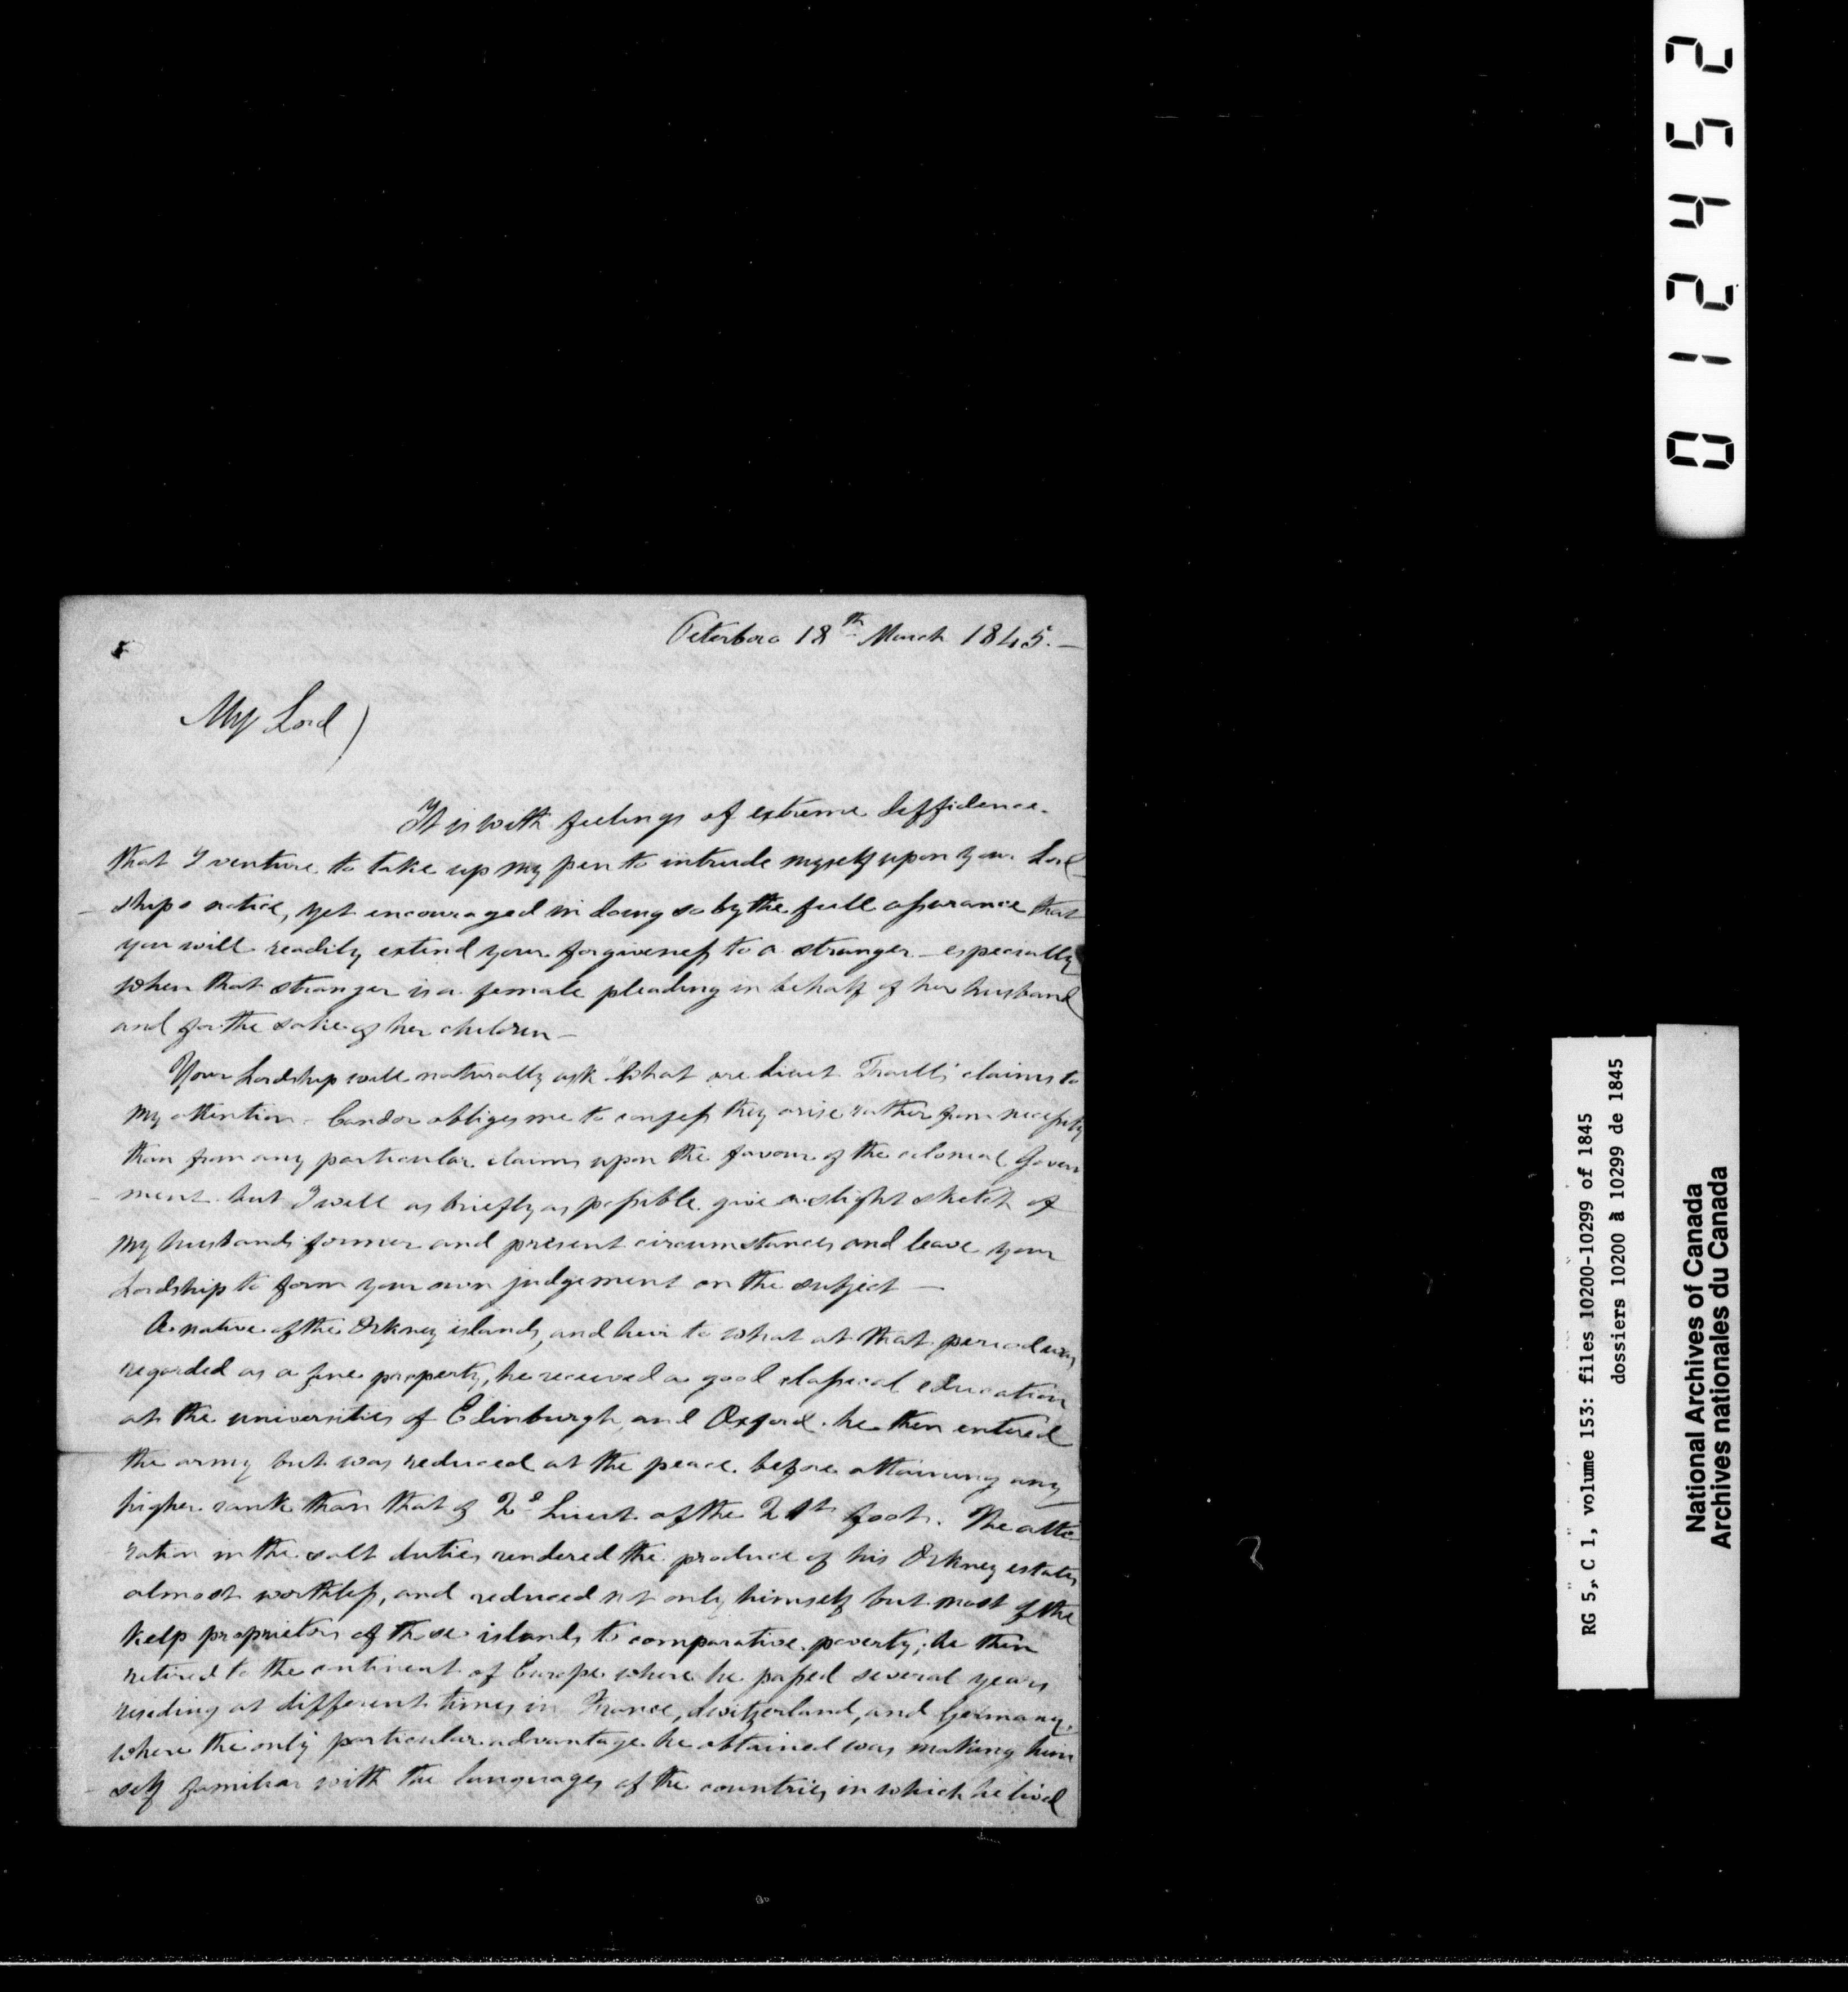 Peterboro 18th March 1845.—
My Lord)
It is with feelings of extreme diffidence.
that I venture to take up my pen to intrude myself upon your Lord
-ships notice, yet encouraged in doing so by the full assurance that
you will readily extend your forgiveness to a stranger - especially
when that stranger is a female pleading in behalf of her husband
and for the sake of her children —
Your Lordship will naturally ask "What are Lieut Traill's claims to
my attention - Candor obliges me to confess they arise rather from necessity
than from any particular claims upon the favour of the colonial Govern
-ment. but I will as briefly as possible give a slight sketch of
my husbands former and present circumstances and leave your
Lordship to form your own judgement on the subject —
A native of the Orkney islands, and heir to what at that period was
regarded as a fine property, he received a good classical education
at the universities of Edinburgh, and Oxford. he then entered
the army but was reduced at the peace. before attaining any
higher rank than that of 2d Lieut of the 21st foot. The alte
-ration in the salt duties rendered the produce of his Orkney estates
almost worthless, and reduced not only himself but most of the
kelp proprietors of those islands to comparative poverty; he then
retired to the continent of Europe where he passed several years
residing at different times in France, Switzerland, and Germany.
where the only particular advantage he obtained was making him
-self familiar with the languages of the countries in which he lived
012452
RG 5, C 1, volume 153: files 10200-10299 of 1845
dossiers 10200 à 10299 de 1845
National Archives of Canada
Archives nationales du Canada